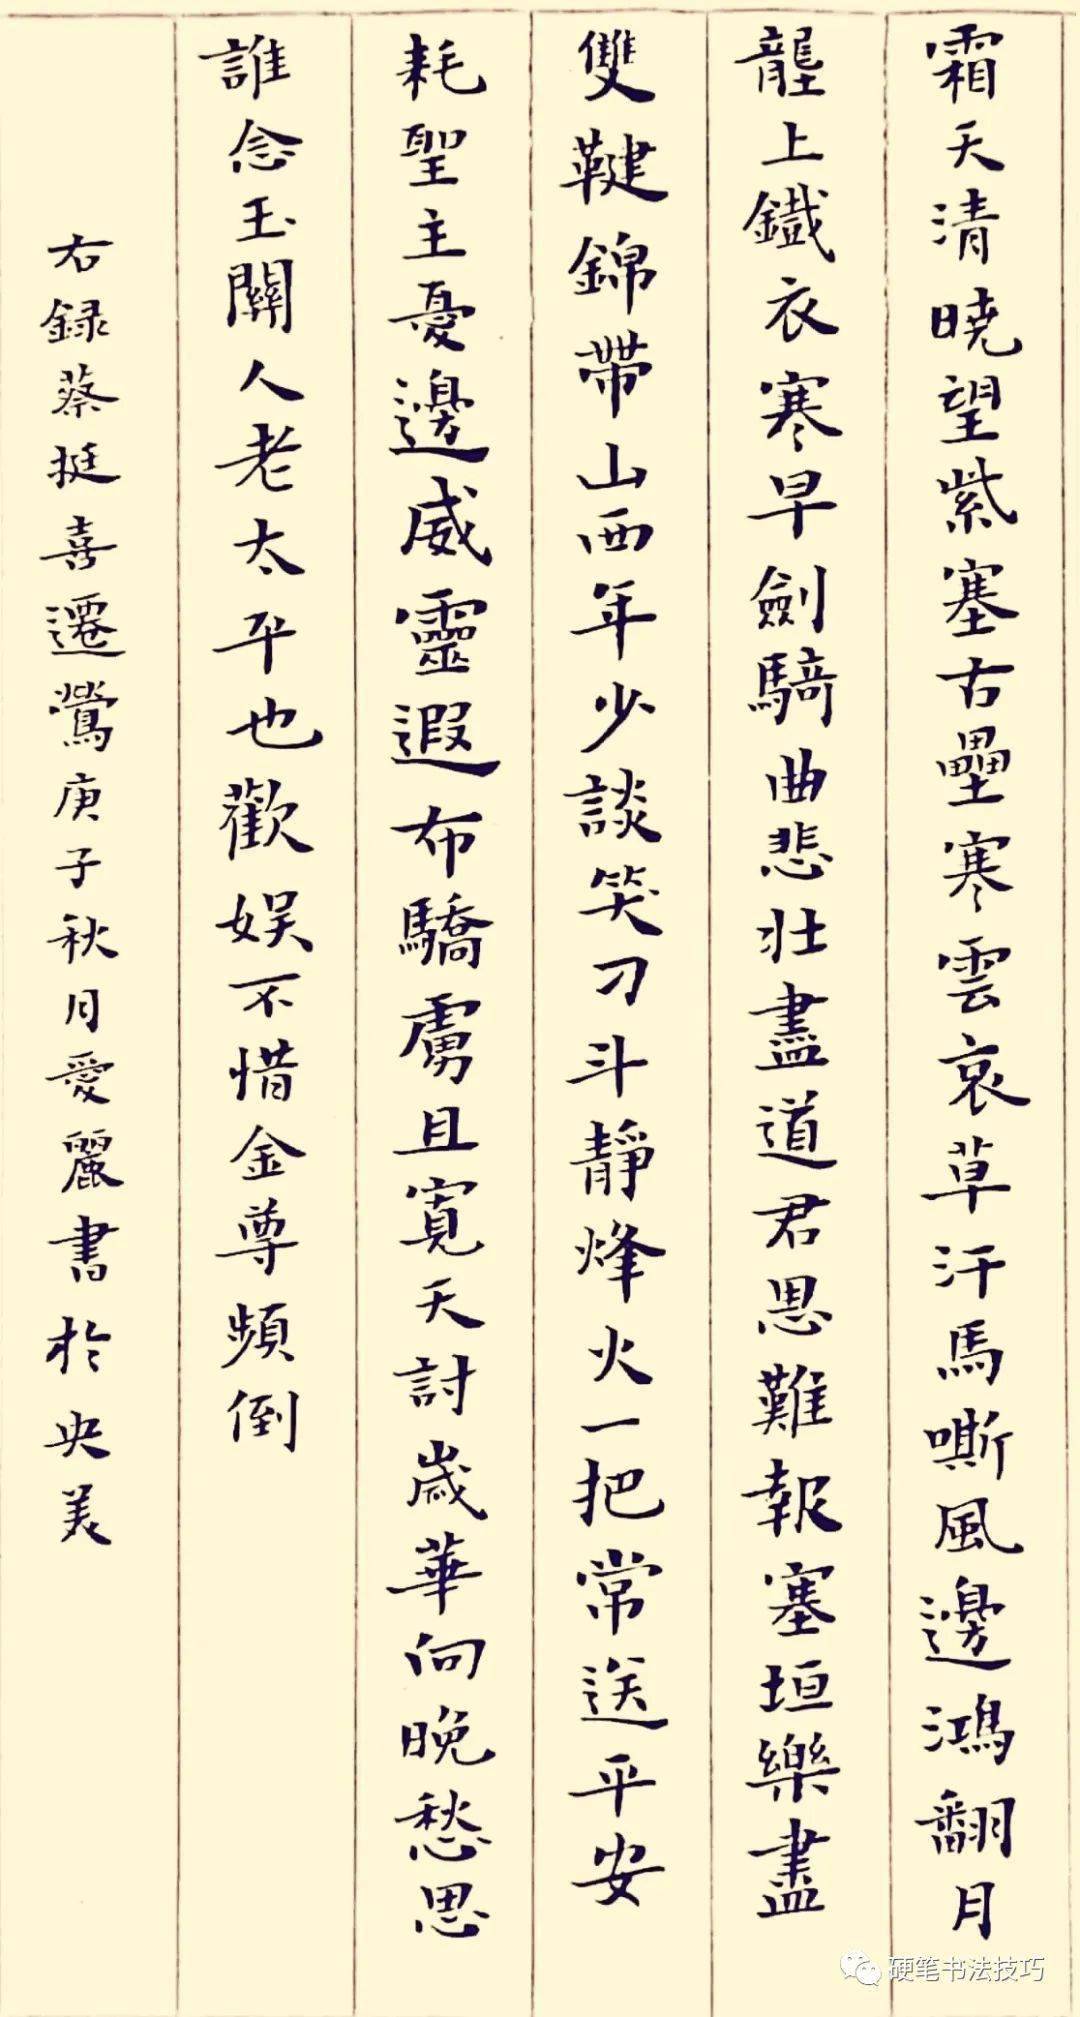 霜天清曉望紫塞古壘寒雲衰草汗馬嘶風邊鴻翻月
壟上鐵衣寒早劍騎曲悲壯盡道君恩難報塞垣樂盡
雙鞬錦帶山西年少談笑刁斗靜烽火一把常送平安
耗聖主憂邊威靈遐布驕虜且寬天討歲華向晚愁思
誰念玉關人老太平也歡娛不惜金尊頻倒
右録蔡挺喜遷鶯庚子秋月愛麗書於央美
硬笔书法技巧